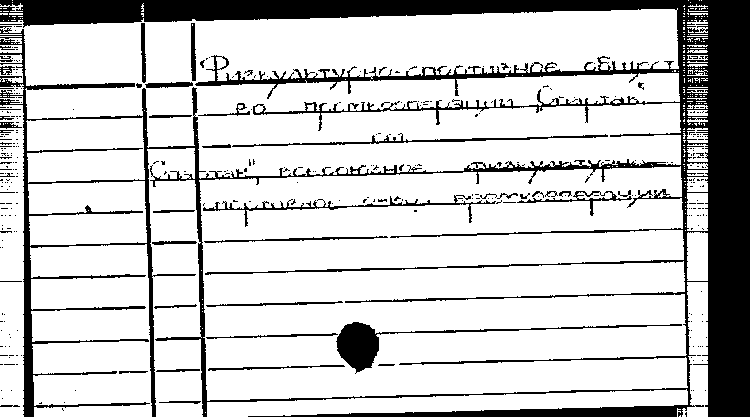 Физкультурно-спортивное общест
во промкооперации „Спартак".
см.
„Спартак", всесоюзное физкультурно
спортивное о-во промкооперации